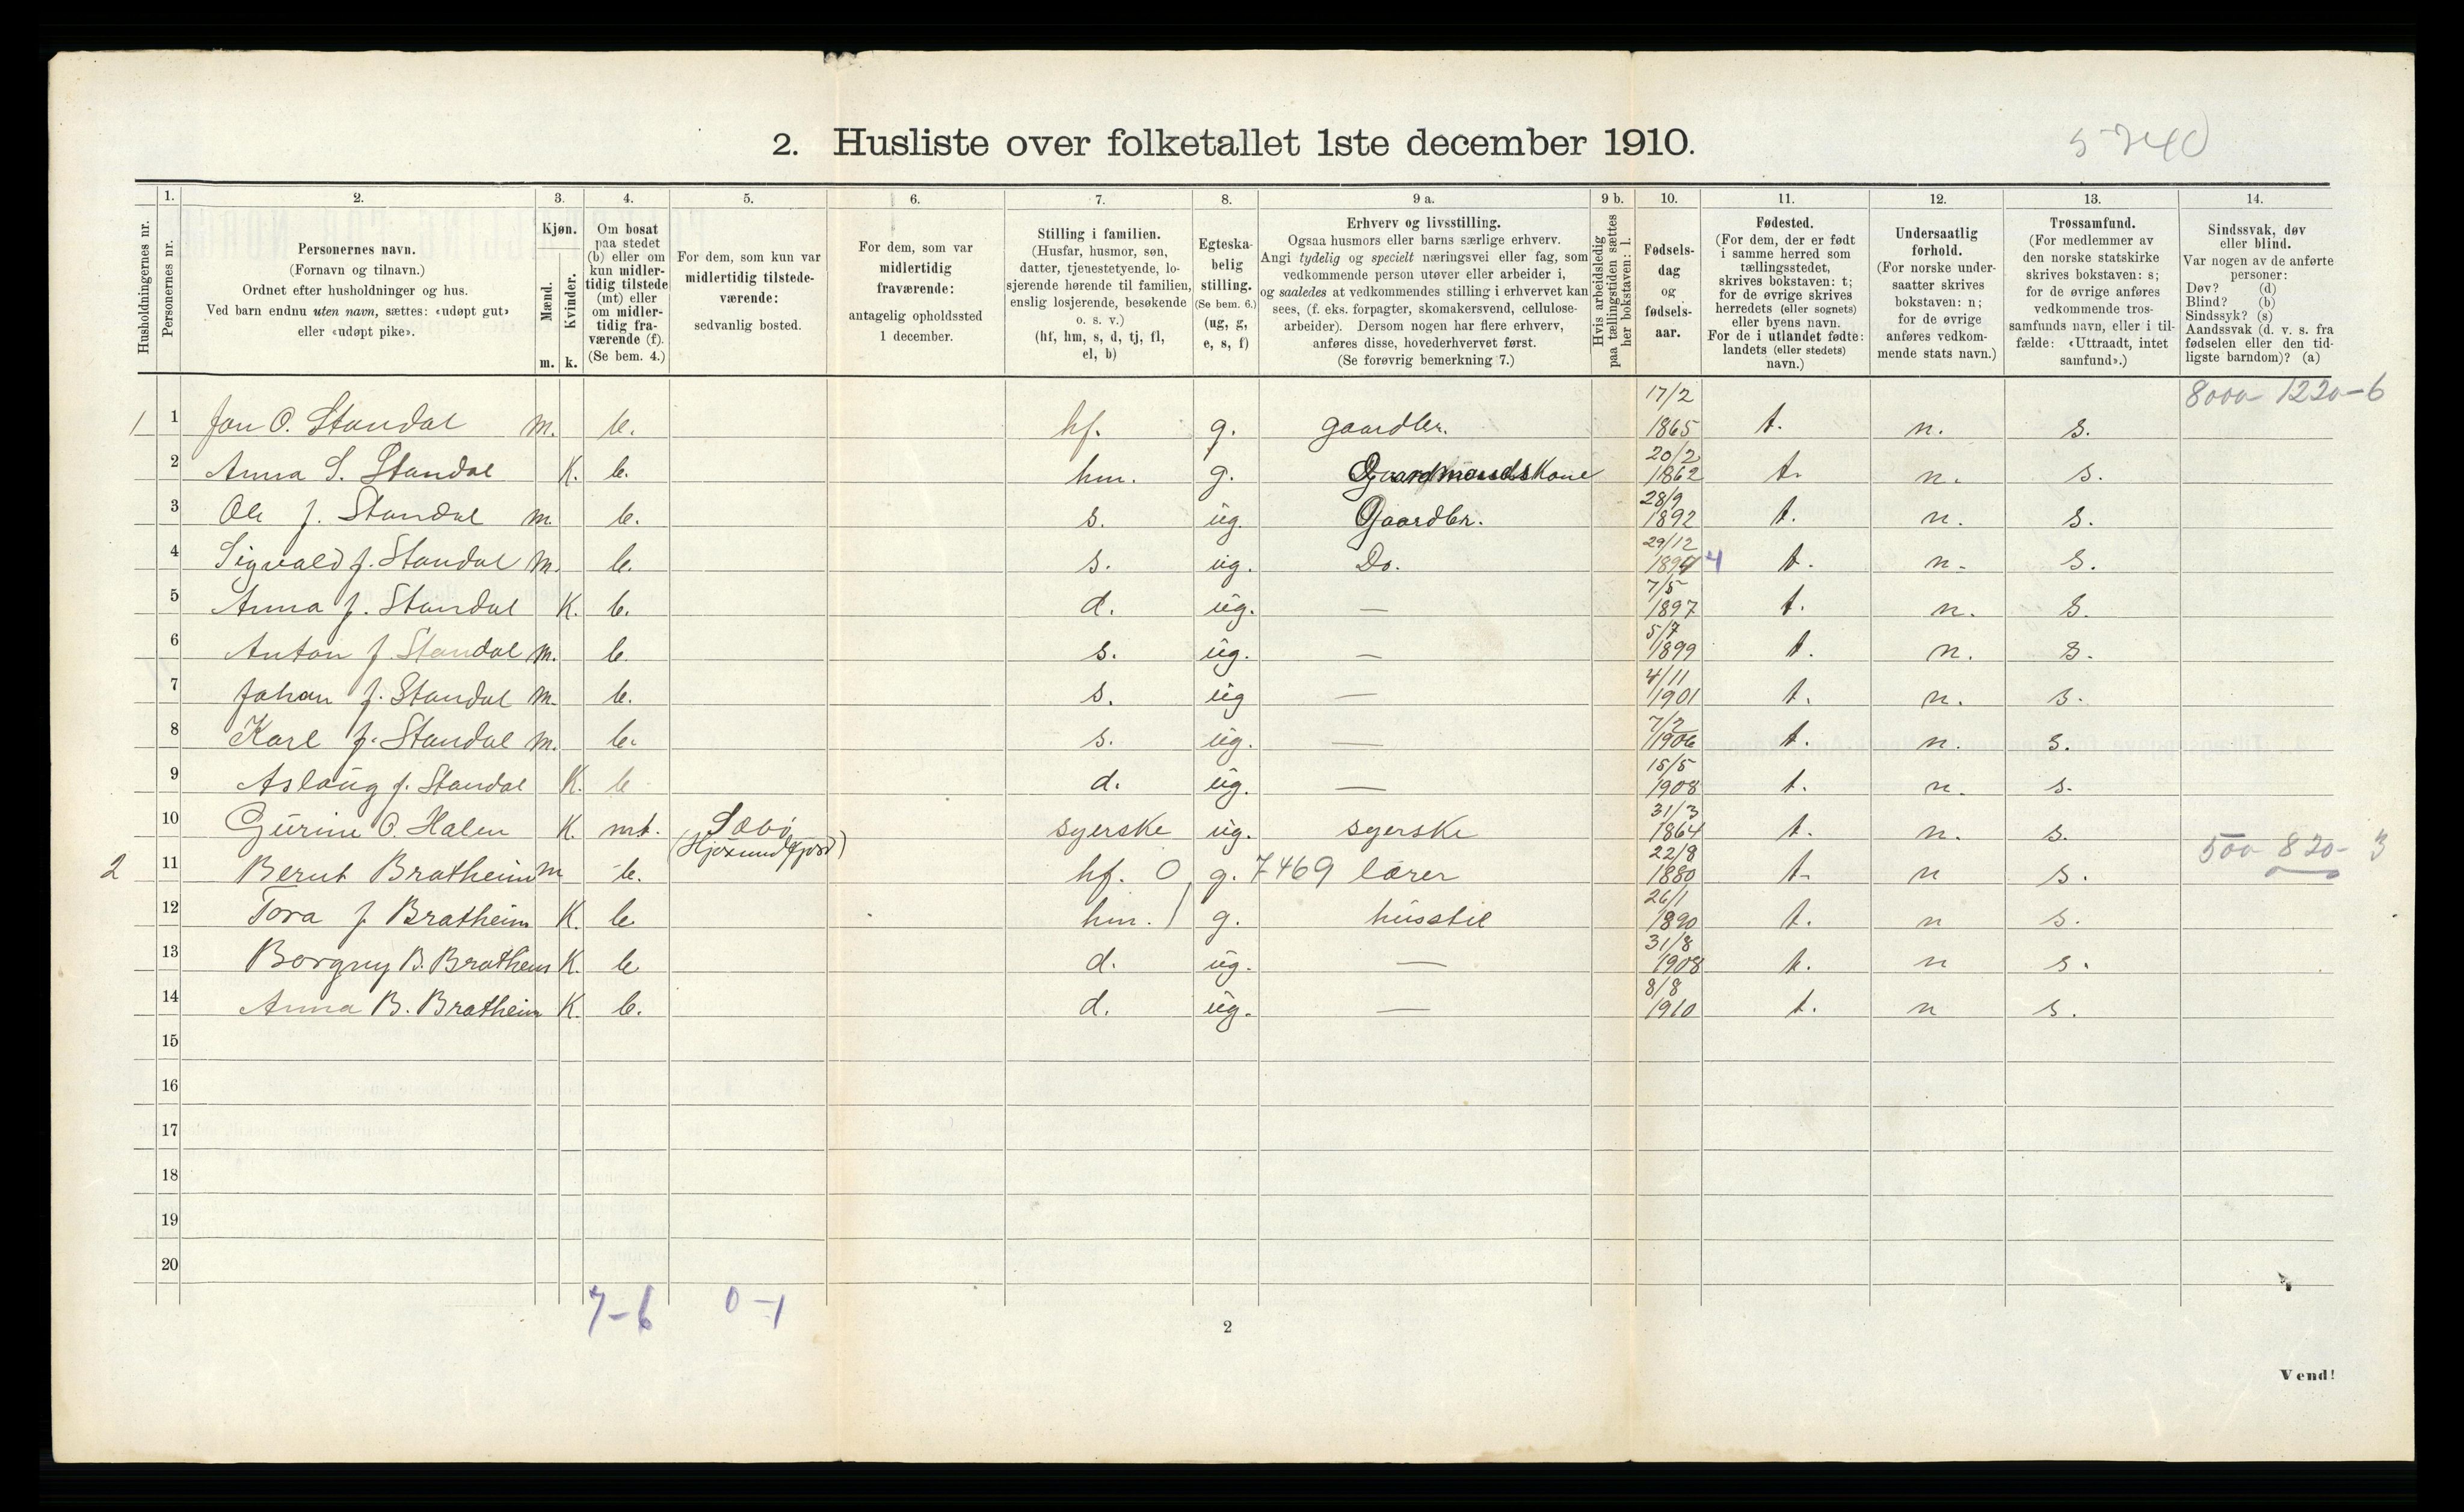 2. Husliste over folketallet 1ste december 1910.
5740
Husholdningernes nr.
1.
Personernes nr.
2.
Personernes navn.
(Fornavn og tilnavn.)
Ordnet efter husholdninger og hus.
Ved barn endnu uten navn, sættes: «udøpt gut»
eller «udøpt pike».
3.
Kjøn.
Mænd.
Kvinder.
m. k.
4.
Om bosat
paa stedet
(b) eller om
kun midler-
tidig tilstede
(mt) eller
om midler-
tidig fra-
værende (f).
(Se bem. 4.)
5.
For dem, som kun var
midlertidig tilstede-
værende:
sedvanlig bosted.
6.
For dem, som var
midlertidig
fraværende:
antagelig opholdssted
1 december.
7.
Stilling i familien.
(Husfar, husmor, søn,
datter, tjenestetyende, lo-
sjerende hørende til familien,
enslig losjerende, besøkende
o. s. v.)
(hf, hm, s, d, tj, fl,
el, b)
8.
Egteska-
belig
stilling.
(Se bem. 6.)
(ug, g,
e, s, f)
9 a.
Erhverv og livsstilling.
Ogsaa husmors eller barns særlige erhverv.
Angi tydelig og specielt næringsvei eller fag, som
vedkommende person utøver eller arbeider i,
og saaledes at vedkommendes stilling i erhvervet kan
sees, (f. eks. forpagter, skomakersvend, cellulose-
arbeider). Dersom nogen har flere erhverv,
anføres disse, hovederhvervet først.
(Se forøvrig bemerkning 7.)
9 b.
Hvis arbeidsledig
paa tællingstiden sættes
her bokstaven: l.
10.
Fødsels-
dag
og
fødsels-
aar.
11.
Fødested.
(For dem, der er født
i samme herred som
tællingsstedet,
skrives bokstaven: t;
for de øvrige skrives
herredets (eller sognets)
eller byens navn.
For de i utlandet fødte:
landets (eller stedets)
navn.)
12.
Undersaatlig
forhold.
(For norske under-
saatter skrives
bokstaven: n;
for de øvrige
anføres vedkom-
mende stats navn.)
13.
Trossamfund.
(For medlemmer av
den norske statskirke
skrives bokstaven: s;
for de øvrige anføres
vedkommende tros-
samfunds navn, eller i til-
fælde: «Uttraadt, intet
samfund».)
14.
Sindssvak, døv
eller blind.
Var nogen av de anførte
personer:
Døv? (d)
Blind? (b)
Sindssyk? (s)
Aandssvak (d. v. s. fra
fødselen eller den tid-
ligste barndom)? (a)
8000 - 1220 - 6
1 1 Jon O. Standal m. b. hf. g. gaardbr. 17/2 1865 t. n. s.
2 Anna S. Standal K. b. hm. g. Gaardmandskone 20/2 1862 t. n. s.
3 Ole J. Standal m. b. s. ug. Gaardbr. 28/9 1892 t. n. s.
4 Sigvald J. Standal m. b. s. ug. Do. 29/12 1894 4 t. n. s.
5 Anna J. Standal K. b. d. ug. — 7/5 1897 t. n. s.
6 Anton J. Standal m. b. s. ug. — 5/7 1899 t. n. s.
7 Johan J. Standal m. b. s. ug — 4/11 1901 t. n. s.
8 Karl J. Standal m. b. s. ug. — 7/2 1906 t. n. s.
9 Aslaug J. Standal K. b d. ug. — 15/5 1908 t. n. s.
10 Gurine O. Halen K. mt. Sæbø (Hjørundfjord) syerske ug. syerske 31/3 1864 t. n. s.
500 - 820 - 3
2 11 Bernt Bratheim m b. hf. 0 g. 7469 lærer 22/8 1880 t. n s.
12 Tora J. Bratheim K. b hm. 1 g. husstil 26/1 1890 t. n s.
13 Borgny B. Bratheim K. b d. ug. — 31/8 1908 t. n s.
14 Anna B. Bratheim K. b. d. ug. — 8/8 1910 t. n s.
15
16
17
18
19
20
7-6 0-1
2
Vend!